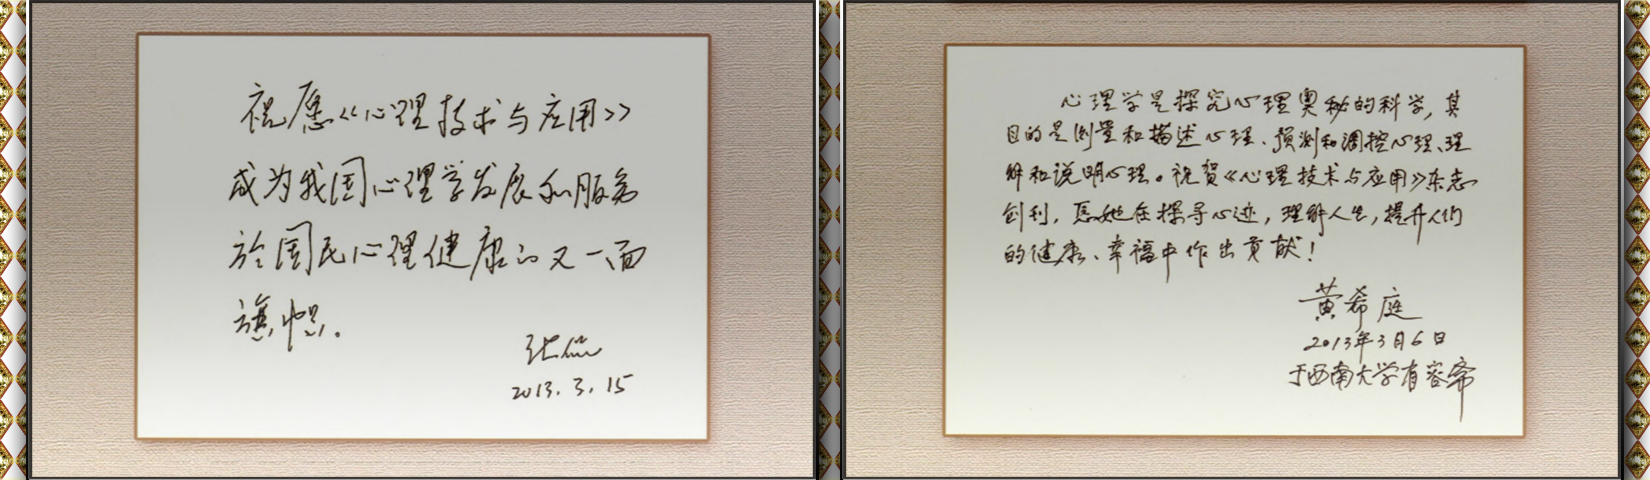 祝愿《心理技术与应用》
成为我国心理学发展和服务
於国民心理健康的又一面
旗帜。
张侃
2013.3.15
心理学是探究心理奥秘的科学，其
目的是测量和描述心理、预测和调控心理、理
解和说明心理。祝贺《心理技术与应用》杂志
创刊，愿她在探寻心迹，理解人生，提升人们
的健康、幸福中作出贡献！
黄希庭
2013年3月6日
于西南大学有容斋